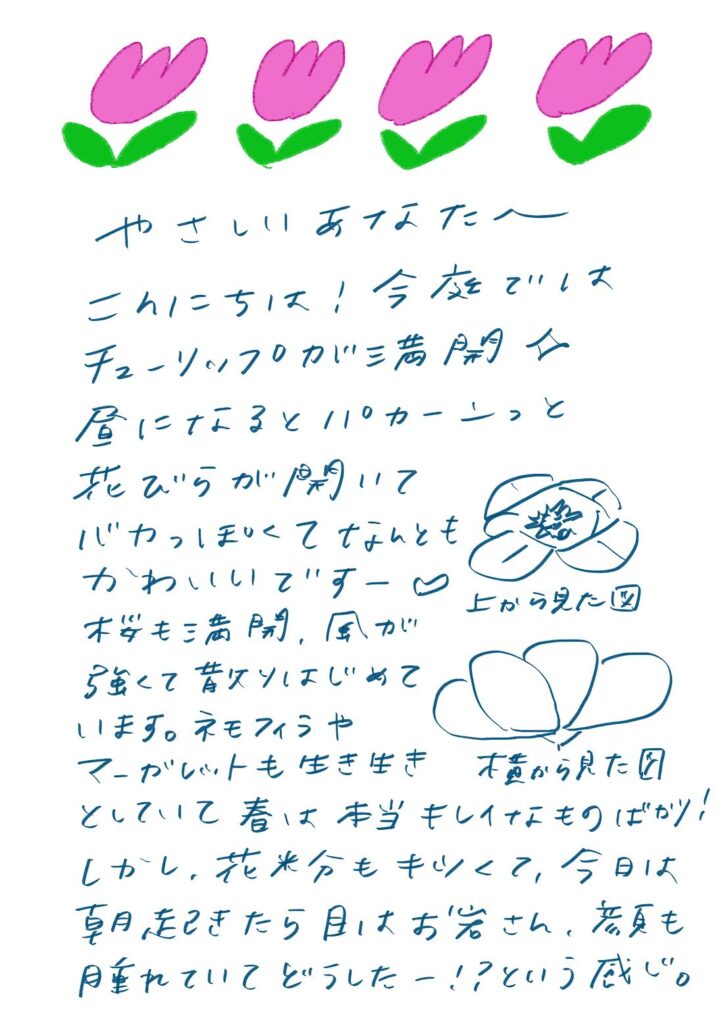 やさしいあなたへ
こんにちは！今庭では
チューリップが満開✧
昼になるとパカーンっと
花びらが開いて
バカっぽくてなんとも
かわいいですー♡
上から見た図
桜も満開、風が
強くて散りはじめて
います。ネモフィラや
マーガレットも生き生き
横から見た図
としていて春は本当キレイなものばかり！
しかし、花粉もキツくて、今日は
朝起きたら目はお岩さん、顔も
腫れていてどうしたー！？という感じ。